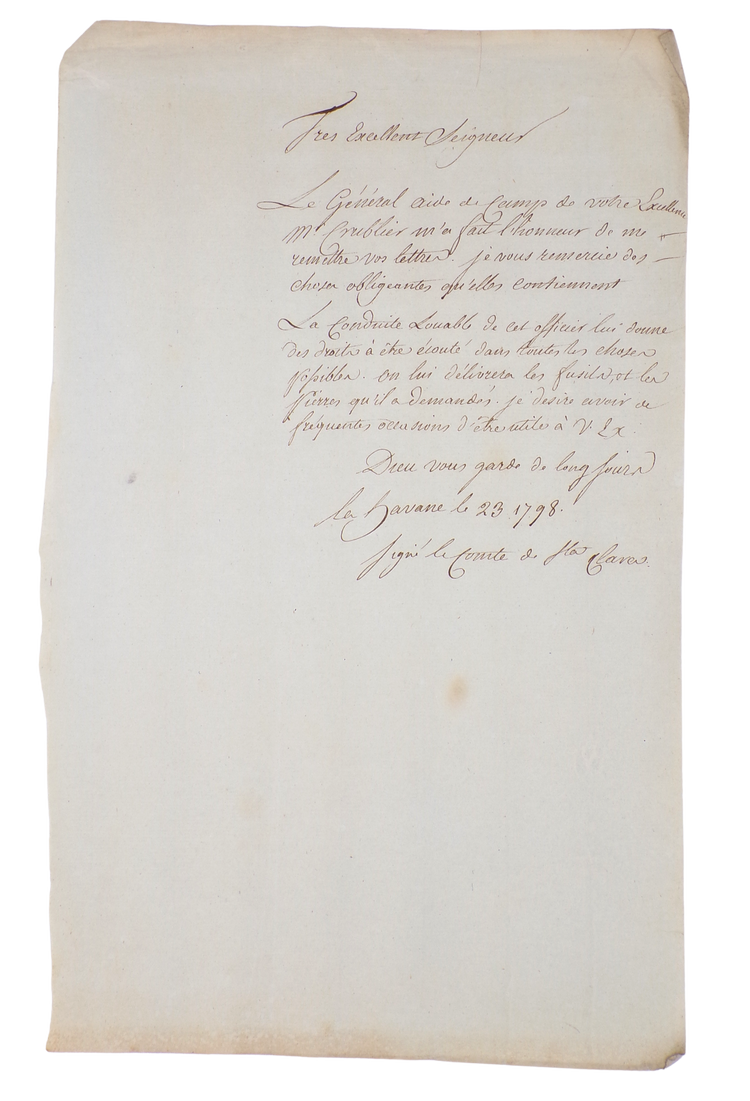 Tres Excellent Seigneur
Le Général aide de Camp de votre Excellence
Mr Crublier m'a fait l'honneur de me
remettre vos lettres. je vous remercie des
choses obligeantes qu'elles contiennent
La Conduite Louable de cet officier lui donne
des droits à être écouté dans toutes les choses
possibles. on lui délivrera les fusils, et les
pierres qu'il a demandés. je desire avoir de
fréquentes occasions d'être utile à V. Ex.
Dieu vous garde de long jours
la havane le 23 1798.
signé le Comte de Sta Clara.